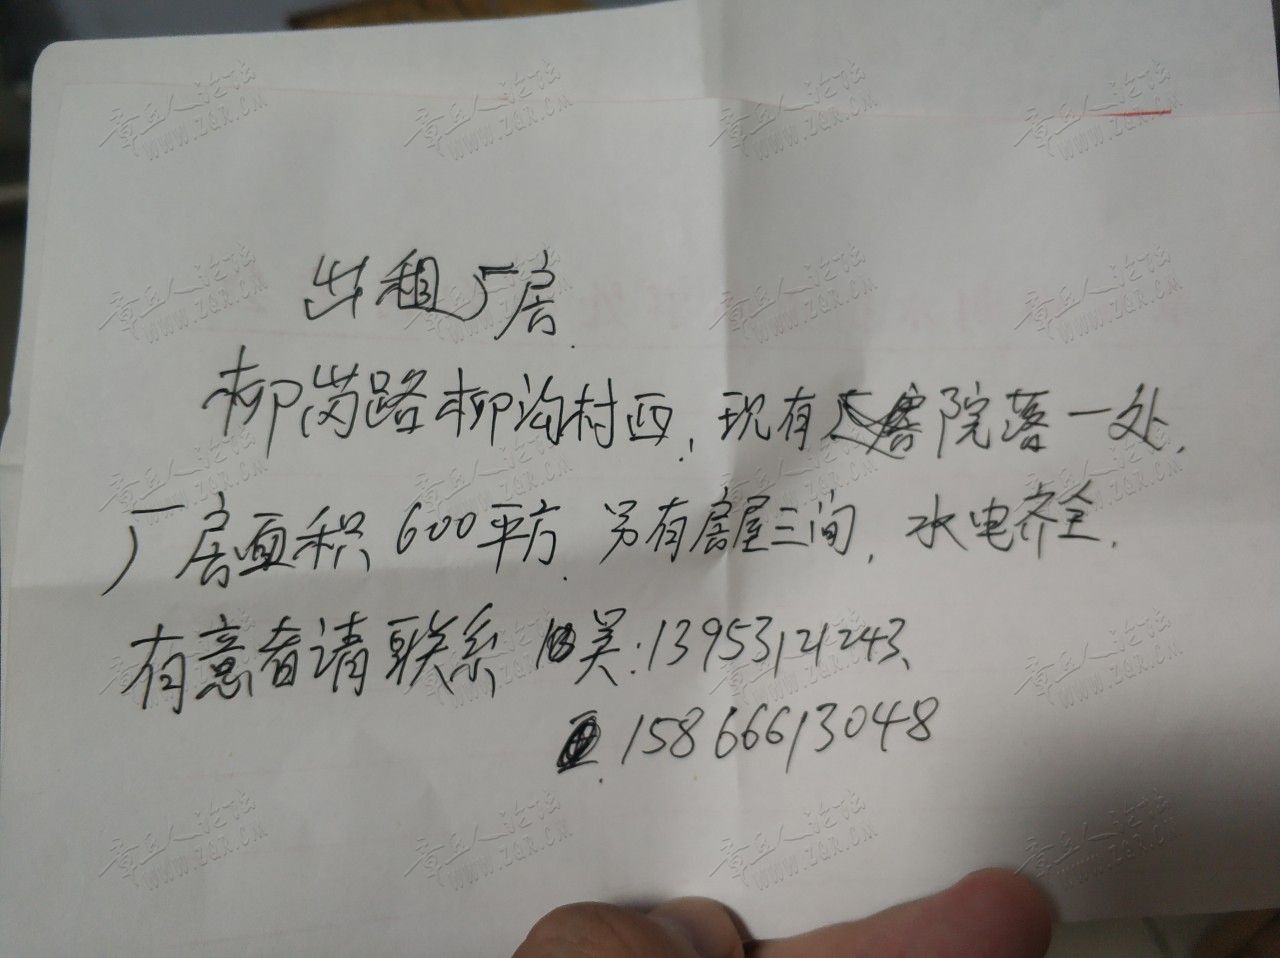 出租厂房.
柳岗路柳沟村西, 现有院落一处,
厂房面积 600平方. 另有房屋三间, 水电齐全.
有意者请联系 吴:13953121243、
15866613048
章丘人论坛
WWW.ZQR.CM